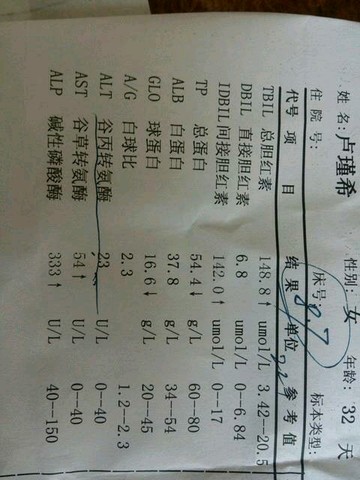 姓名:卢瑾希 性别: 女 年龄: 32 天
住院号: 床号: 标本类型:
代号 项 目 结果 单位 参考值
TBIL 总胆红素 148.8↑ umol/L 3.42--20.5
DBIL 直接胆红素 6.8 umol/L 0--6.84
IDBIL间接胆红素 142.0↑ umol/L 0--17
TP 总蛋白 54.4↓ g/L 60--80
ALB 白蛋白 37.8 g/L 34--54
GLO 球蛋白 16.6↓ g/L 20--45
A/G 白球比 2.3 1.2--2.3
ALT 谷丙转氨酶 23 U/L 0--40
AST 谷草转氨酶 54↑ U/L 0--40
ALP 碱性磷酸酶 333↑ U/L 40--150